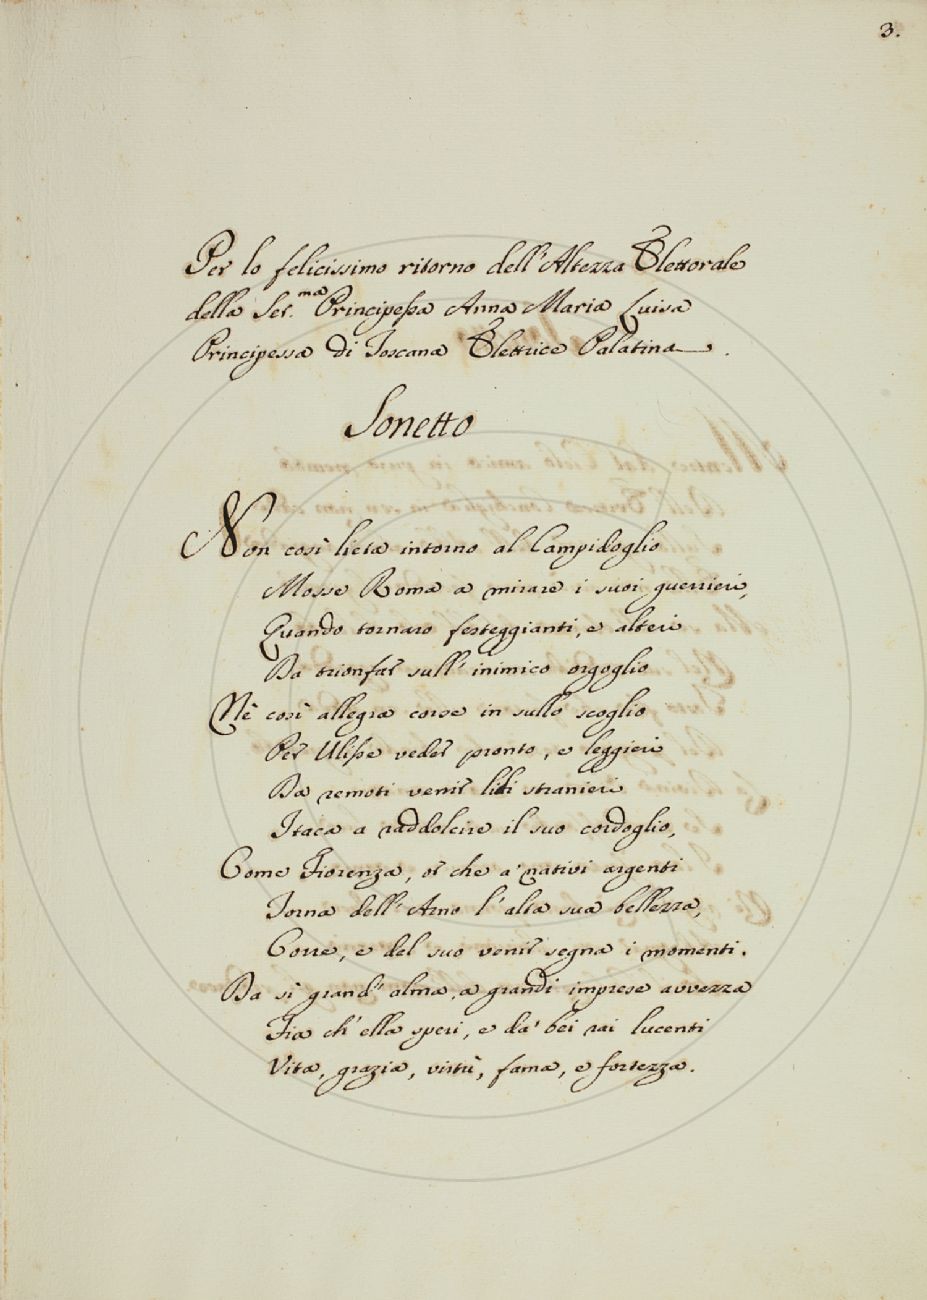 3.
Per lo felicissimo ritorno dell'Altezza Elettorale
della Ser.ma Principessa Anna Maria Luisa
Principessa di Toscana Elettrice Palatina.
Sonetto
Non così lieta intorno al Campidoglio
Mosse Roma a mirare i suoi guerrieri,
Quando tornaro festeggianti, e alteri
Da trionfar sull' inimico orgoglio
Nè così allegra corse in sullo scoglio
Per Ulisse veder pronto, e leggieri
Da remoti venir lidi stranieri
Itaca a raddolcire il suo cordoglio,
Come Fiorenza, or che a' nativi argenti
Torna dell' Arno l' alta sua bellezza,
Corre, e del suo venir segna i momenti.
Da sì grand' alma, a grandi imprese avvezza
Fia ch' ella speri, e da' bei rai lucenti
Vita, grazia, virtù, fama, e fortezza.